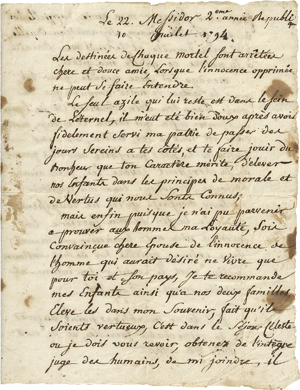 Le 22. Messidor 2.eme année Republi
10 Juillet 1794.
Les destinées de Chaque mortel sont arretées
chere et douce amie, Lorsque l'innocence opprimée
ne peut se faire Entendre.
Le seul azile qui lui reste est dans le sein
de L'eternel, il m'eut été bien doux après avoir
fidelement servi ma patrie de passer des
jours Sereins a tes cotés et te faire jouir du
Bonheur que ton Caractère mérite d'elever
nos Enfants dans les principes de morale et
de Vertus qui nous sont Connus;
mais enfin puisque je n'ai pu parvenir
a prouver aux hommes ma Loyauté, sois
Convaincue chere Epouse de l'innocence de
l'homme qui aurait désiré ne Vivre que
pour toi et son pays, Je te recommande
mes Enfants ainsi qu'a nos deux familles
Eleve les dans mon Souvenir fait qu'il
soients vertueux, C'est dans le Séjour Celeste
ou je dois vous revoir, obtenez de l'integre
juge des humains, de mi joindre, il